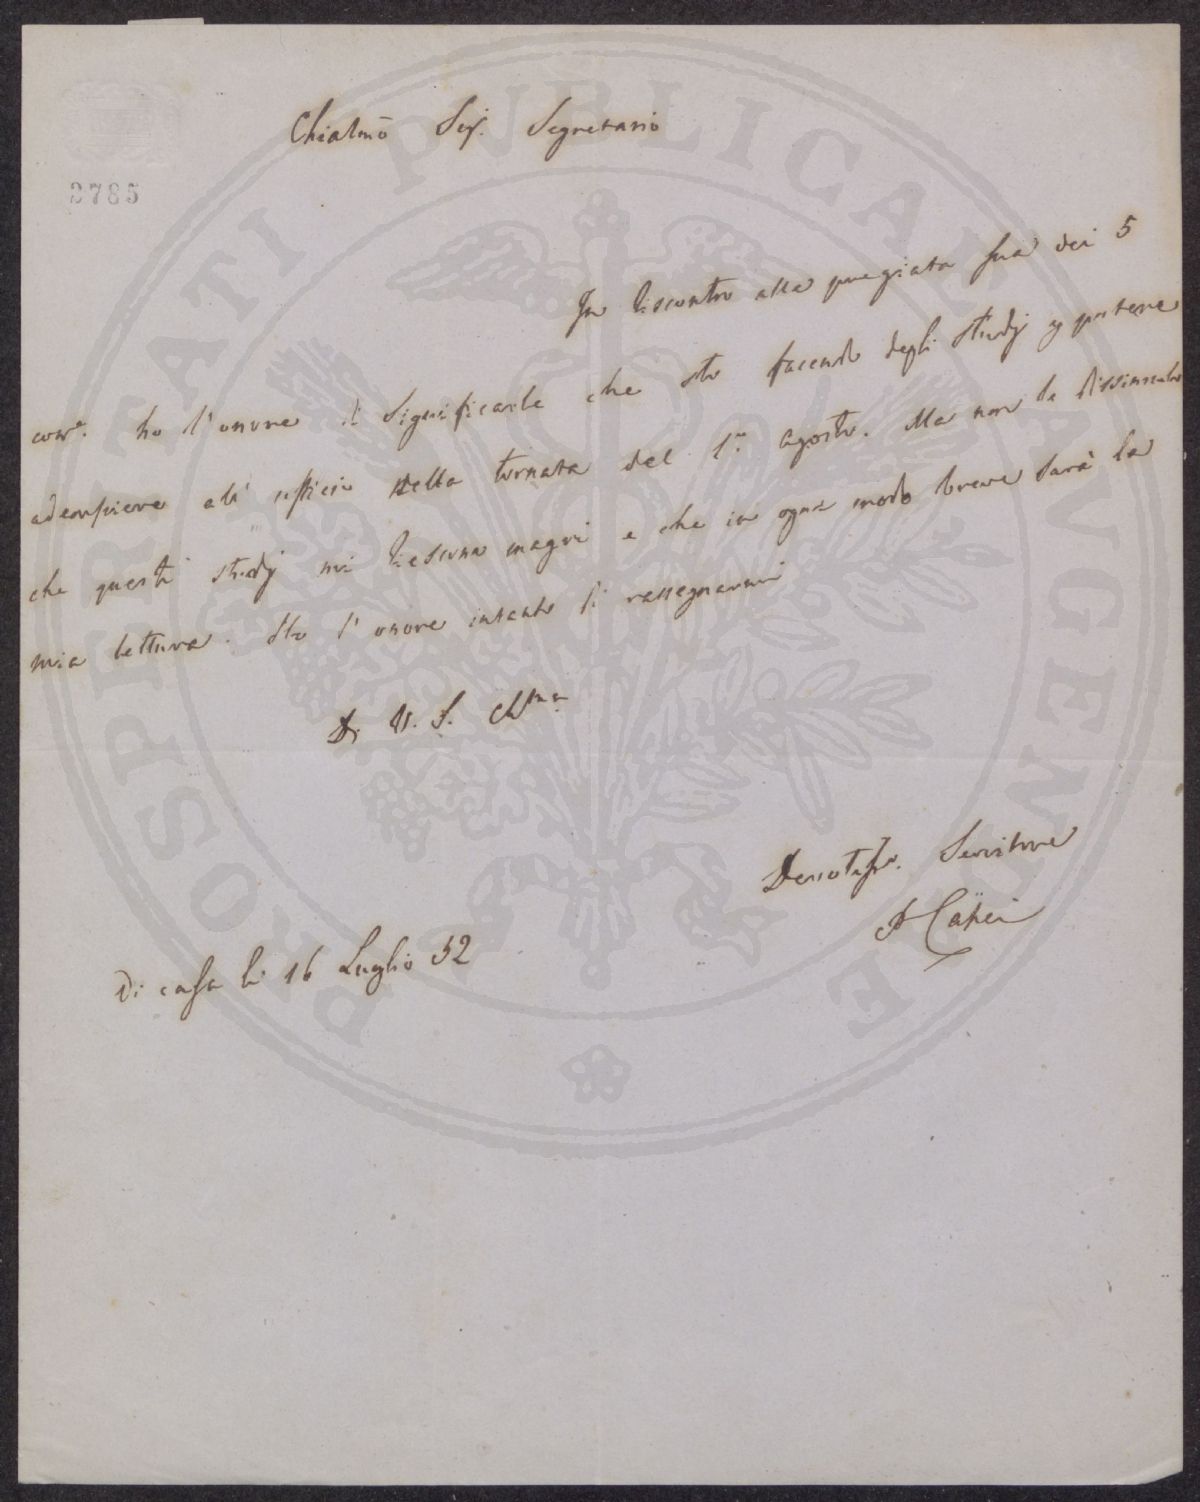 2785
Chiarmo Sig. Segretario
In riscontro alla pregiata sua dei 5
corre. ho l'onore di significarle che sto facendo degli studj p potere
adempiere all' ufficio nella tornata del 1mo agosto. Ma non le dissimulo
che questi studj mi riescono magri e che in ogni modo breve sarà la
mia lettura. Ho l'onore intanto di rassegnarmi
Di V. S. Chma
Devotissmo. Servitore
Capei
Di casa li 16 Luglio 52
PROSPERITATI PUBLICAE AUGENDAE